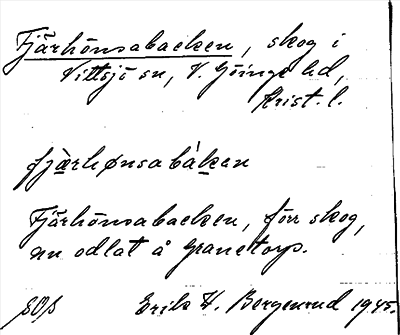 Fjärhönsabacken, skog i
Vittsjö sn, V. Göinge hd,
Krist. l.
fjærhønsabákan
Fjärhönsabacken, förr skog,
nu odlat å Granetorp.
Erik W. Bergenrud 1945.